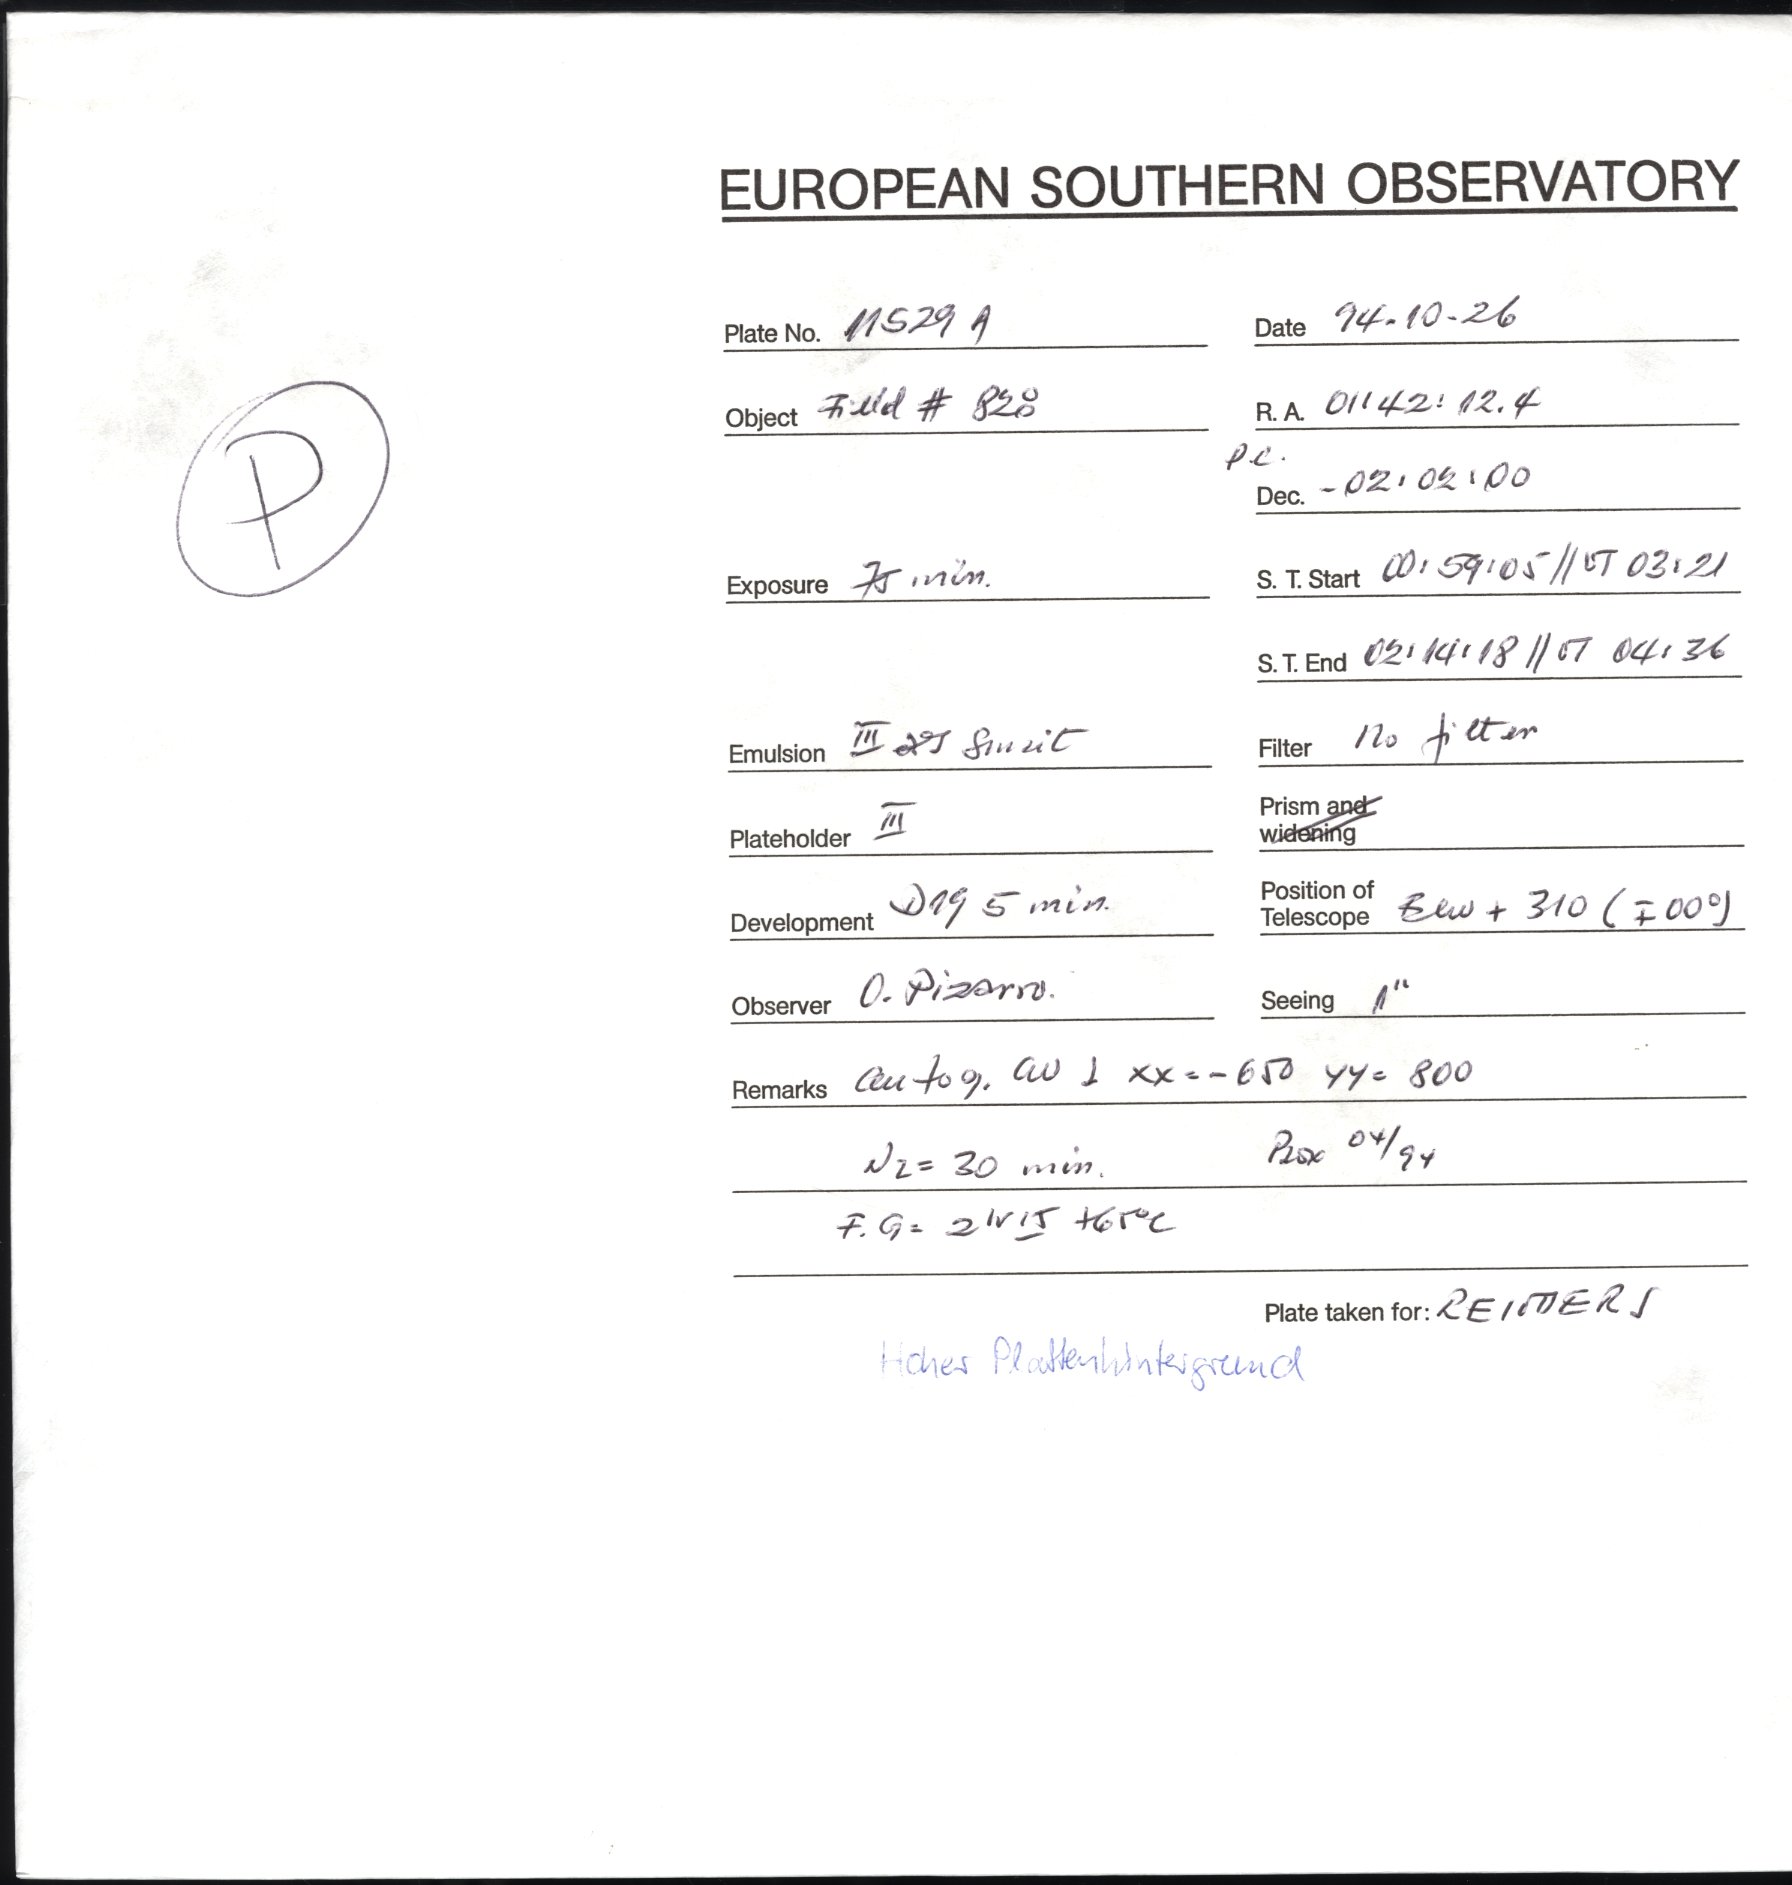 EUROPEAN SOUTHERN OBSERVATORY
Plate No. 11529 A
Date 94-10-26
Object Field # 828
R. A. 01:42:12.4
P
p.c.
Dec. -02:02:00
Exposure 75 min.
S. T. Start 00:59:05 // UT 03:21
S. T. End 02:14:18 // UT 04:36
Emulsion III
Filter No filter
Plateholder III
Prism and widening
Development D19 5 min.
Position of Telescope + 310 (∓00°)
Observer O. Pizarro.
Seeing 1"
Remarks autog. xx=-650 yy= 800
N2= 30 min.
04/94
F.G=
Plate taken for: REIMERS
Hoher Plattenhintergrund